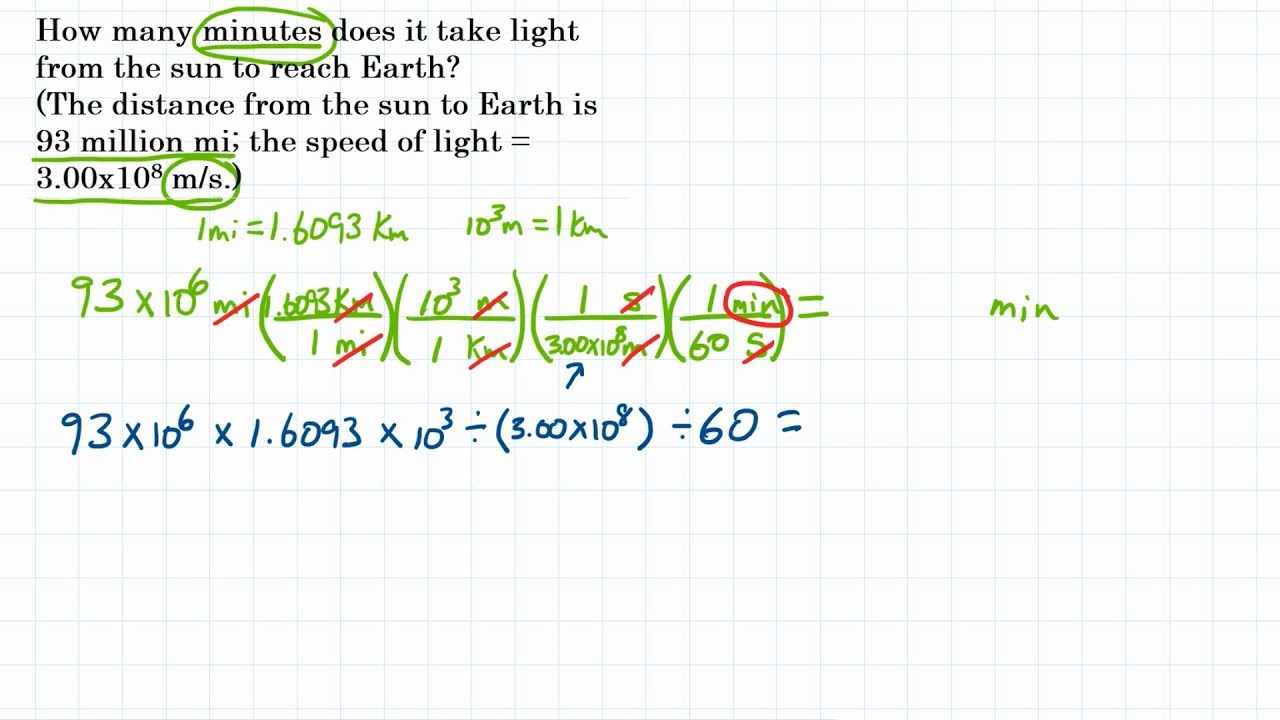 How many minutes does it take light
from the sun to reach Earth?
(The distance from the sun to Earth is
93 million mi; the speed of light =
3.00x10⁸ m/s.)
1mi = 1.6093 Km 10³m = 1 Km
93 x 10⁶ mi (1.6093 Km / 1 mi)(10³ m / 1 Km)(1 s / 3.00x10⁸ m)(1 min / 60 s) = min
93 x 10⁶ x 1.6093 x 10³ ÷ (3.00 x 10⁸) ÷ 60 =